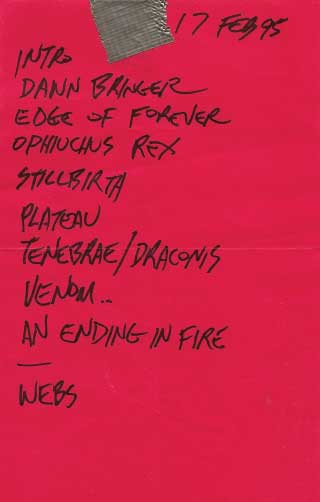 17 FEB 95
INTRO
DAWN BRINGER
EDGE OF FOREVER
OPHIUCHUS REX
STILLBIRTH
PLATEAU
TENEBRAE/DRACONIS
VENOM...
AN ENDING IN FIRE
—
WEBS